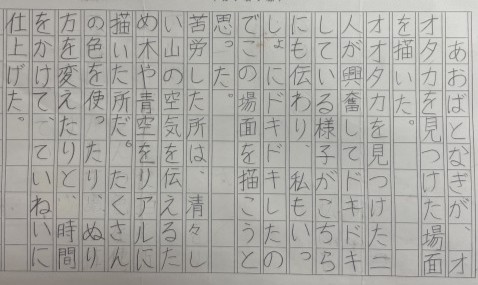 あおばとなぎが、オ
オタカを見つけた場面
を描いた。
オオタカを見つけた二
人が興奮してドキドキ
している様子がこちら
にも伝わり、私もいっ
しょにドキドキしたの
でこの場面を描こうと
思った。
苦労した所は、清々し
い山の空気を伝えるた
め木や青空をリアルに
描いた所だ。たくさん
の色を使ったり、ぬり
方を変えたりと、時間
をかけて、ていねいに
仕上げた。